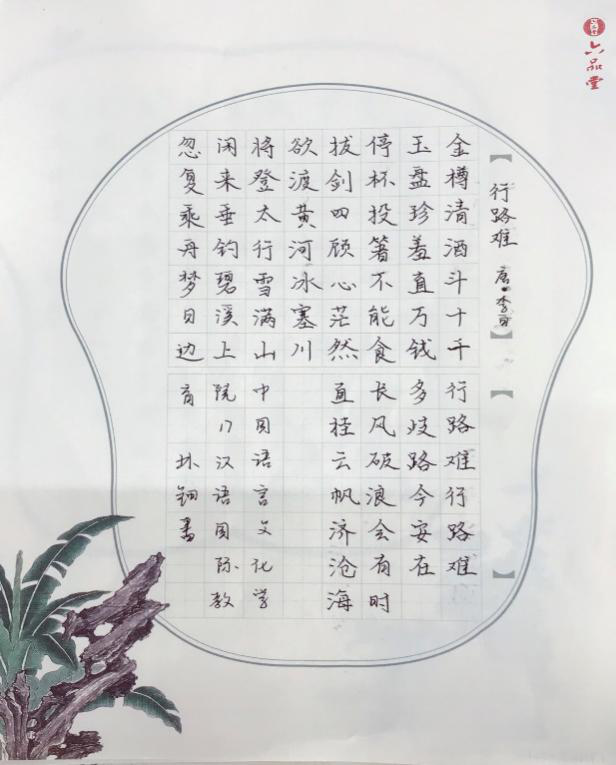 六品堂
【行路难 唐·李白】
金樽清酒斗十千
玉盘珍羞直万钱
停杯投箸不能食
拔剑四顾心茫然
欲渡黄河冰塞川
将登太行雪满山
闲来垂钓碧溪上
忽复乘舟梦日边
【 】
行路难行路难
多歧路今安在
长风破浪会有时
直挂云帆济沧海
中国语言文化学
院17汉语国际教
育 书